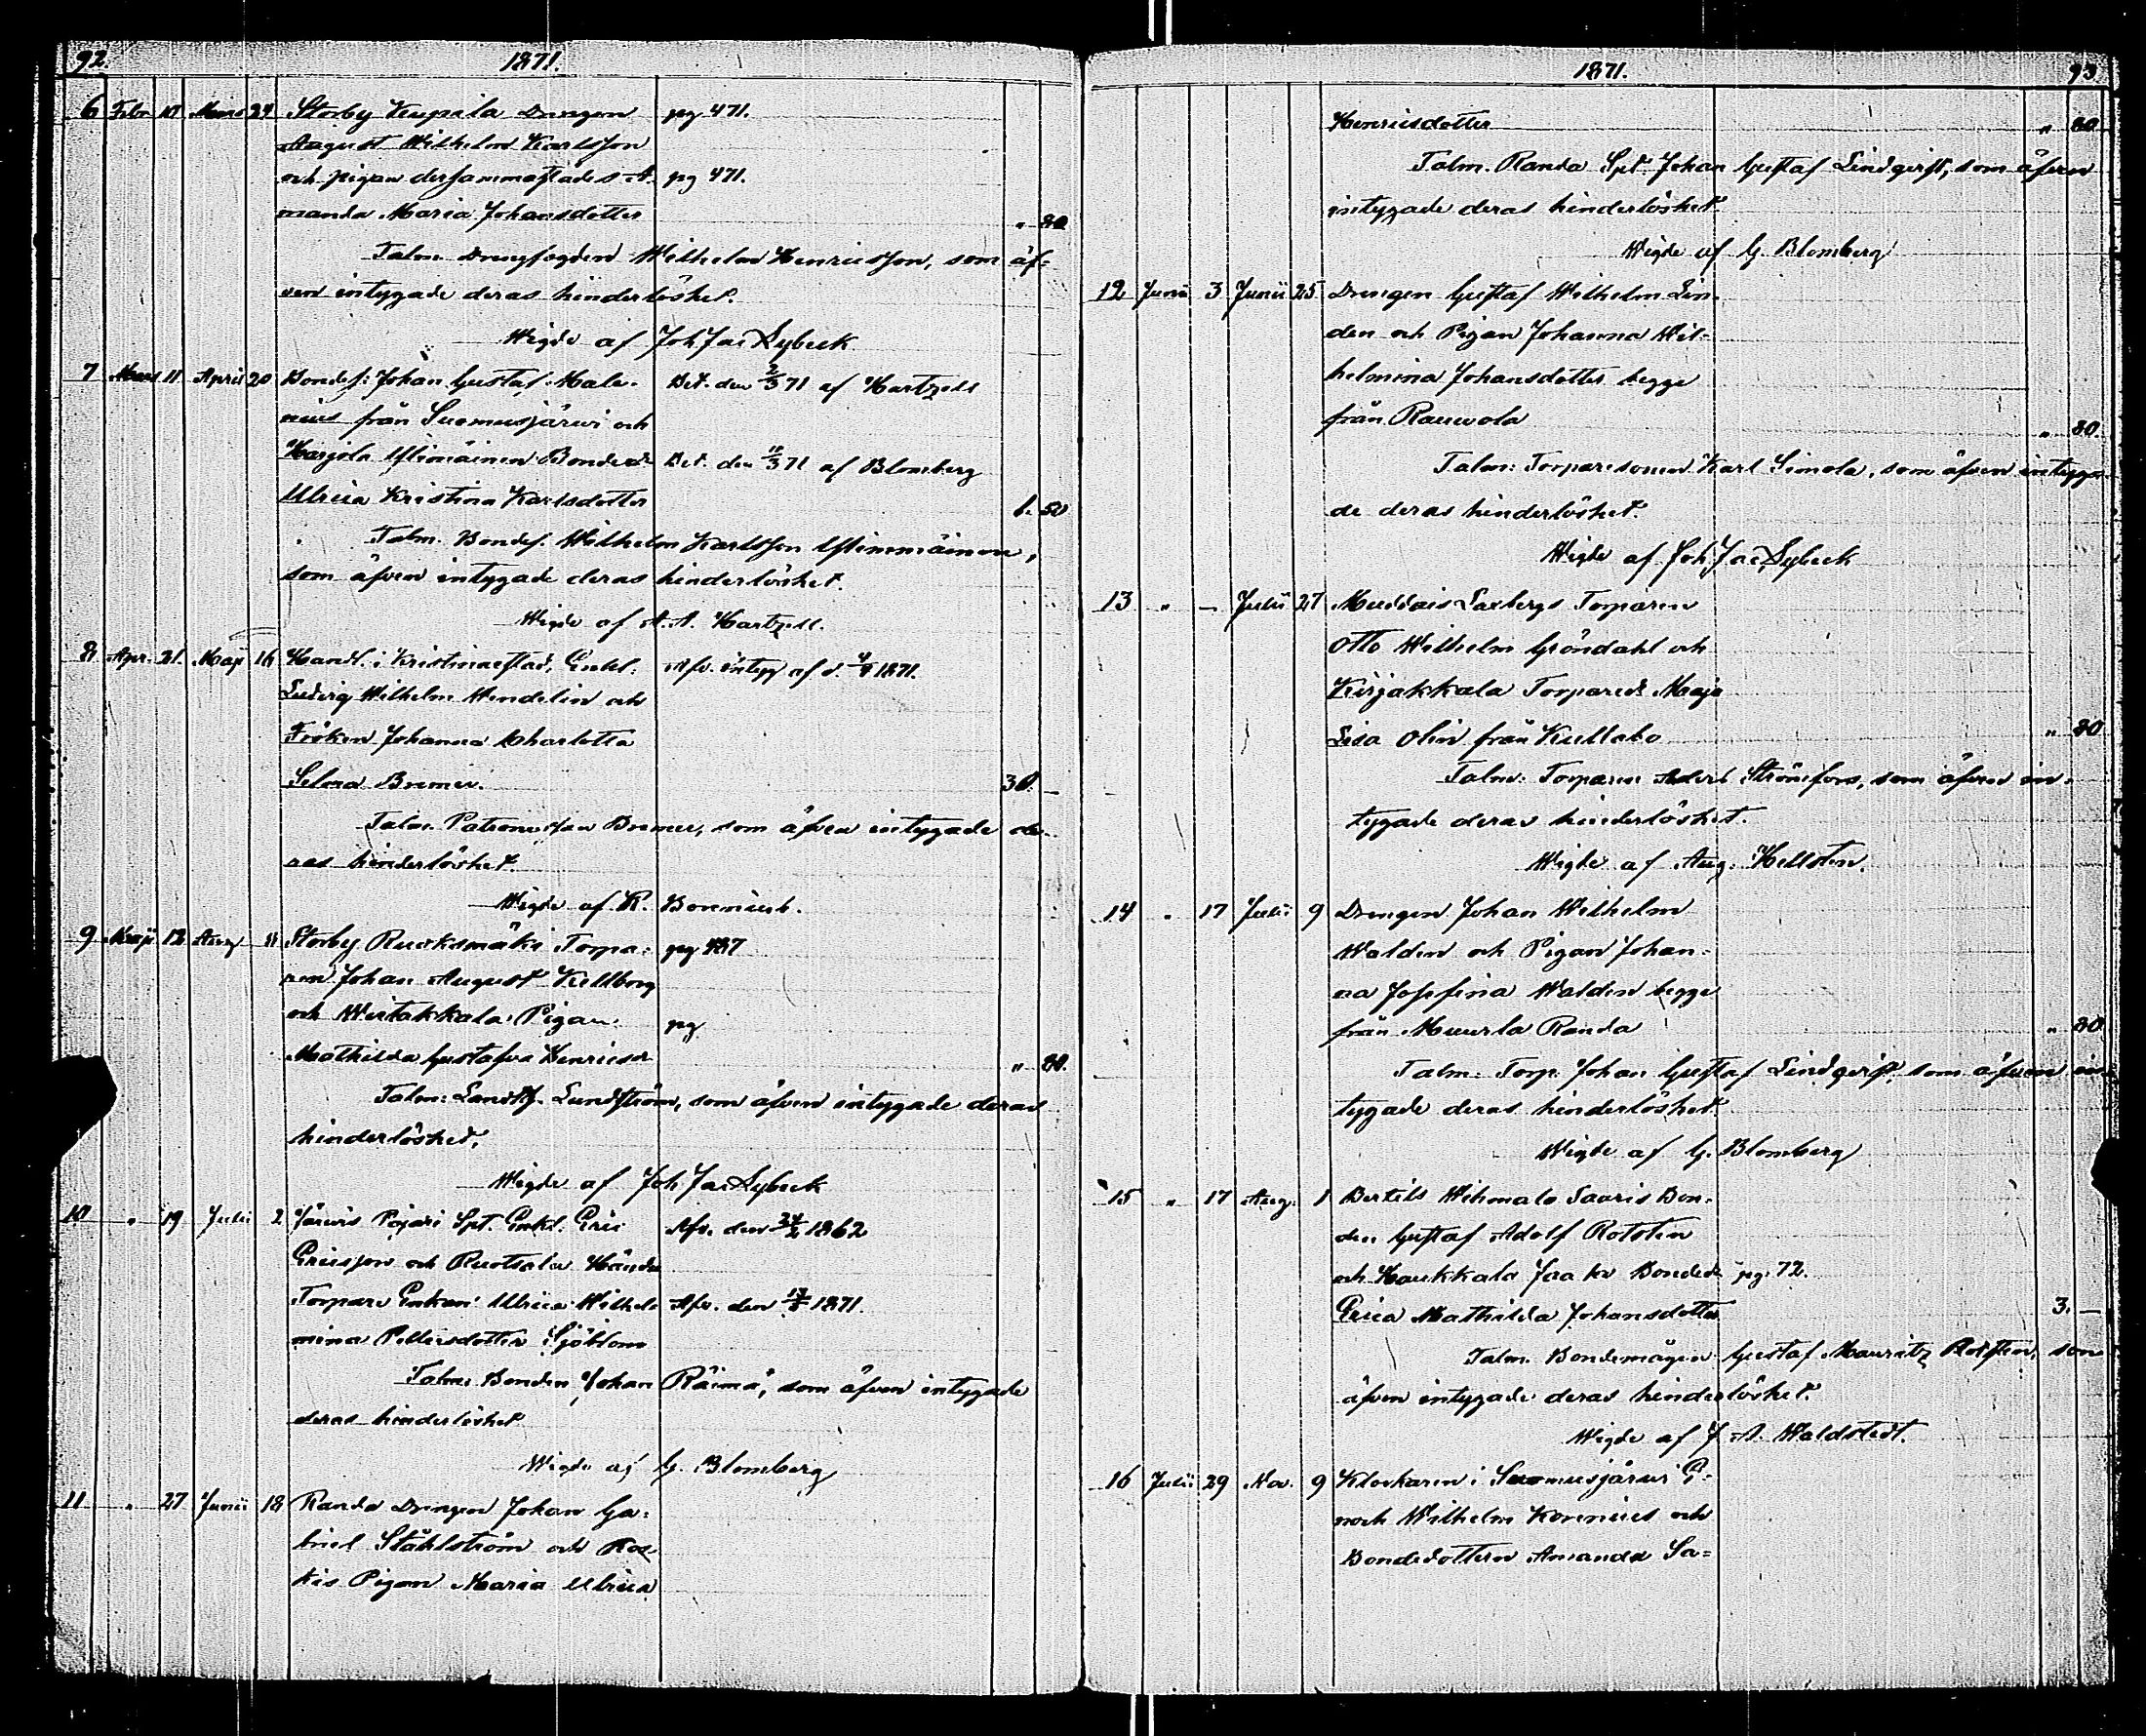 92. 1871.
6 Febr. 10 Mars 24 Storby Keupila Drengen pg 471.
August Wilhelm Karlsson
och pigan dersammastädes A- pg 471.
manda Maria Johansdotter „ 80
Talm. Drengfogden Wilhelm Henricsson, som äf-
ven intygade deras hinderlöshet.
Wigde af Joh Jac Lybeck
7 Mars 11 April 20 Bondes: Johan Gustaf Male- Bet. den 2/3 71 af Hartzell
nius från Suomusjärwi och
Harjola Bonded. Bet. den 11/3 71 af Blomberg
Ulrica Kristina Karlsdotter 1. 50
Talm. Bondes. Wilhelm Karlsson
som äfven intygade deras hinderlöshet.
Wigde af A. A. Hartzell.
8 Apr. 21. Maji 16 Handl. i Kristinestad, Enkl. Afv. intyg af d. 1871.
Ludvig Wilhelm Wendelin och
Fröken Johanna Charlotta
Selma Bremer. 30. —
Talm. Patronus Bremer, som äfven intygade de-
ras hinderlöshet.
Wigde af K. Borenius.
9 Maji 12 Aug Storby Ruuksmäki Torpa- pg 487
ren Johan August Kullberg
och Wiitakkala Pigan pg
Mathilda Gustafva Henricsd. „ 80.
Talm: Lundström, som äfven intygade deras
hinderlöshet.
Wigde af Joh Jac Lybeck
10 „ 19 Julii 2 Järvis Pajari Spt. Enkl. Eric Afv. den 1862
Ericsson och Ruotsala Hända
Torpare Enkan Ulrica Wilhel- Afv. den 1871.
mina Pettersdotter Sjöblom
Talm: Bonden Johan Räimä, som äfven intygade
deras hinderlöshet
Wigde af G. Blomberg
11 „ 27 Junii 18 Randa Drengen Johan Ga-
briel Ståhlström och Kos-
kis Pigan Maria Ulrica
1871. 93
Henricsdotter „ 80
Talm. Randa Spt. Johan Gustaf Lindqvist, som äfven
intygade deras hinderlöshet.
Wigde af G. Blomberg
12 Junii 3 Junii 25 Drengen Gustaf Wilhelm Lin-
den och Pigan Johanna Wil-
helmina Johansdotter begge
från Rauvola „ 80.
Talm: Torparesonen Karl Simola, som äfven intyga-
de deras hinderlöshet.
Wigde af Joh. Jac Lybeck
13 „ — Julii 27 Muddais Laxbergs Torparen
Otto Wilhelm Gröndahl och
Kirjakkala Torpared. Maja
Lisa Olin från Kullabo „ 80
Talm: Torparen Strömfors, som äfven in-
tygade deras hinderlöshet.
Wigde af Aug. Hellsten.
14 „ 17 Julii 9 Drengen Johan Wilhelm
Walden och Pigan Johan-
na Josefina Walden begge
från Muurla Randa „ 80
Talm. Torp. Johan Gustaf Lindqvist, som äfven in-
tygade deras hinderlöshet.
Wigde af G. Blomberg
15 „ 17 Aug. 1 Bertils Wihmalo Sauris Bon-
den Gustaf Adolf Rotsten
och Haukkala Jaakk Bonded. pg. 72.
Erica Mathilda Johansdotter 3. —
Talm. Bondemågen Gustaf Mauritz Rotsten, som
äfven intygade deras hinderlöshet.
Wigde af J. A. Waldstedt.
16 Julii 29 Nov. 9 Klockaren i Suomusjärwi E-
noch Wilhelm Korenius och
Bondedottern Amanda Sa-